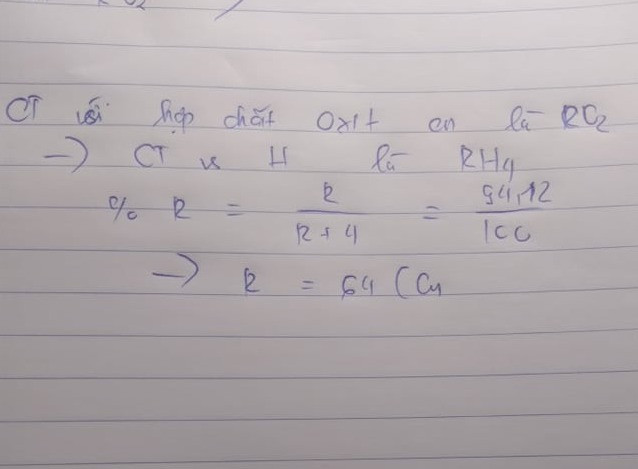 CT với hợp chất oxit cn là RO2
→ CT vs H là RH4
% R = R / R + 4 = 94,12 / 100
→ R = 64 (Cu